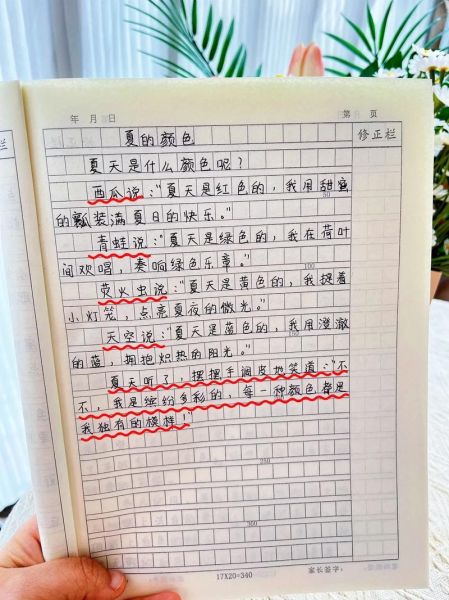 年 月 日 第 页
夏的颜色 修正栏
夏天是什么颜色呢？
西瓜说："夏天是红色的，我用甜蜜
的瓢装满夏日的快乐。"
50
青蛙说："夏天是绿色的，我在荷叶
间欢唱，奏响绿色乐章。"
100
萤火虫说："夏天是黄色的，我提着
小灯笼，点亮夏夜的微光。"
150
天空说："夏天是蓝色的，我用澄澈
的蓝，拥抱炽热的阳光。"
夏天听了，摆摆手调皮地笑道："不
不，我是缤纷多彩的，每一种颜色都是
我独有的模样！"
250
300
17X20=340 家长签字：